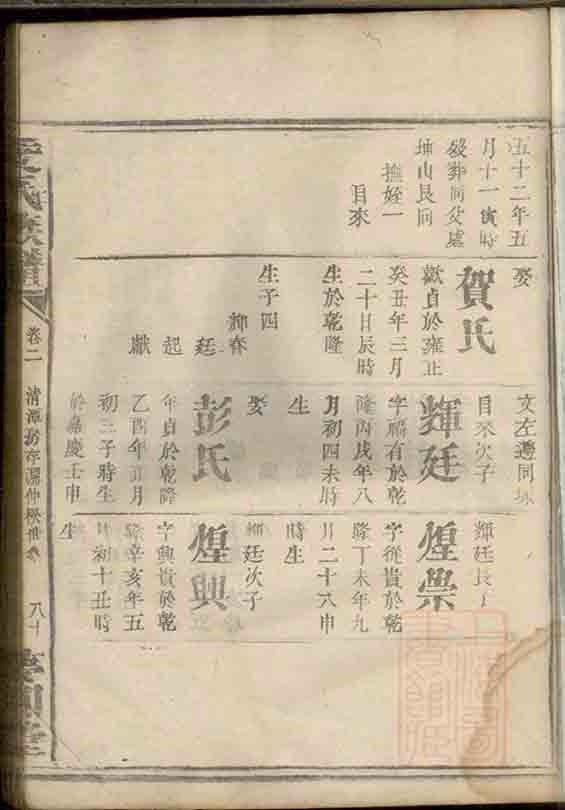 五十二年五
月十一寅時
歿葬同父處
坤山艮向
撫姪一
目來
娶
賀氏
歡貞於雍正
癸丑年三月
二十日辰時
生於乾隆
生子四
輝春
廷
起
獻
文左邊同塚
目來次子
輝廷
字福有於乾
隆丙戌年八
月初四未時
生
娶
彭氏
年貞於乾隆
乙酉年正月
初三子時生
於嘉慶壬申
輝廷長子
煌崇
字從貴於乾
隆丁未年九
月二十六申
時生
輝廷次子
煌興
字興貴於乾
隆辛亥年五
月初十丑時
生
氏族譜
卷二
清潭房存
八十